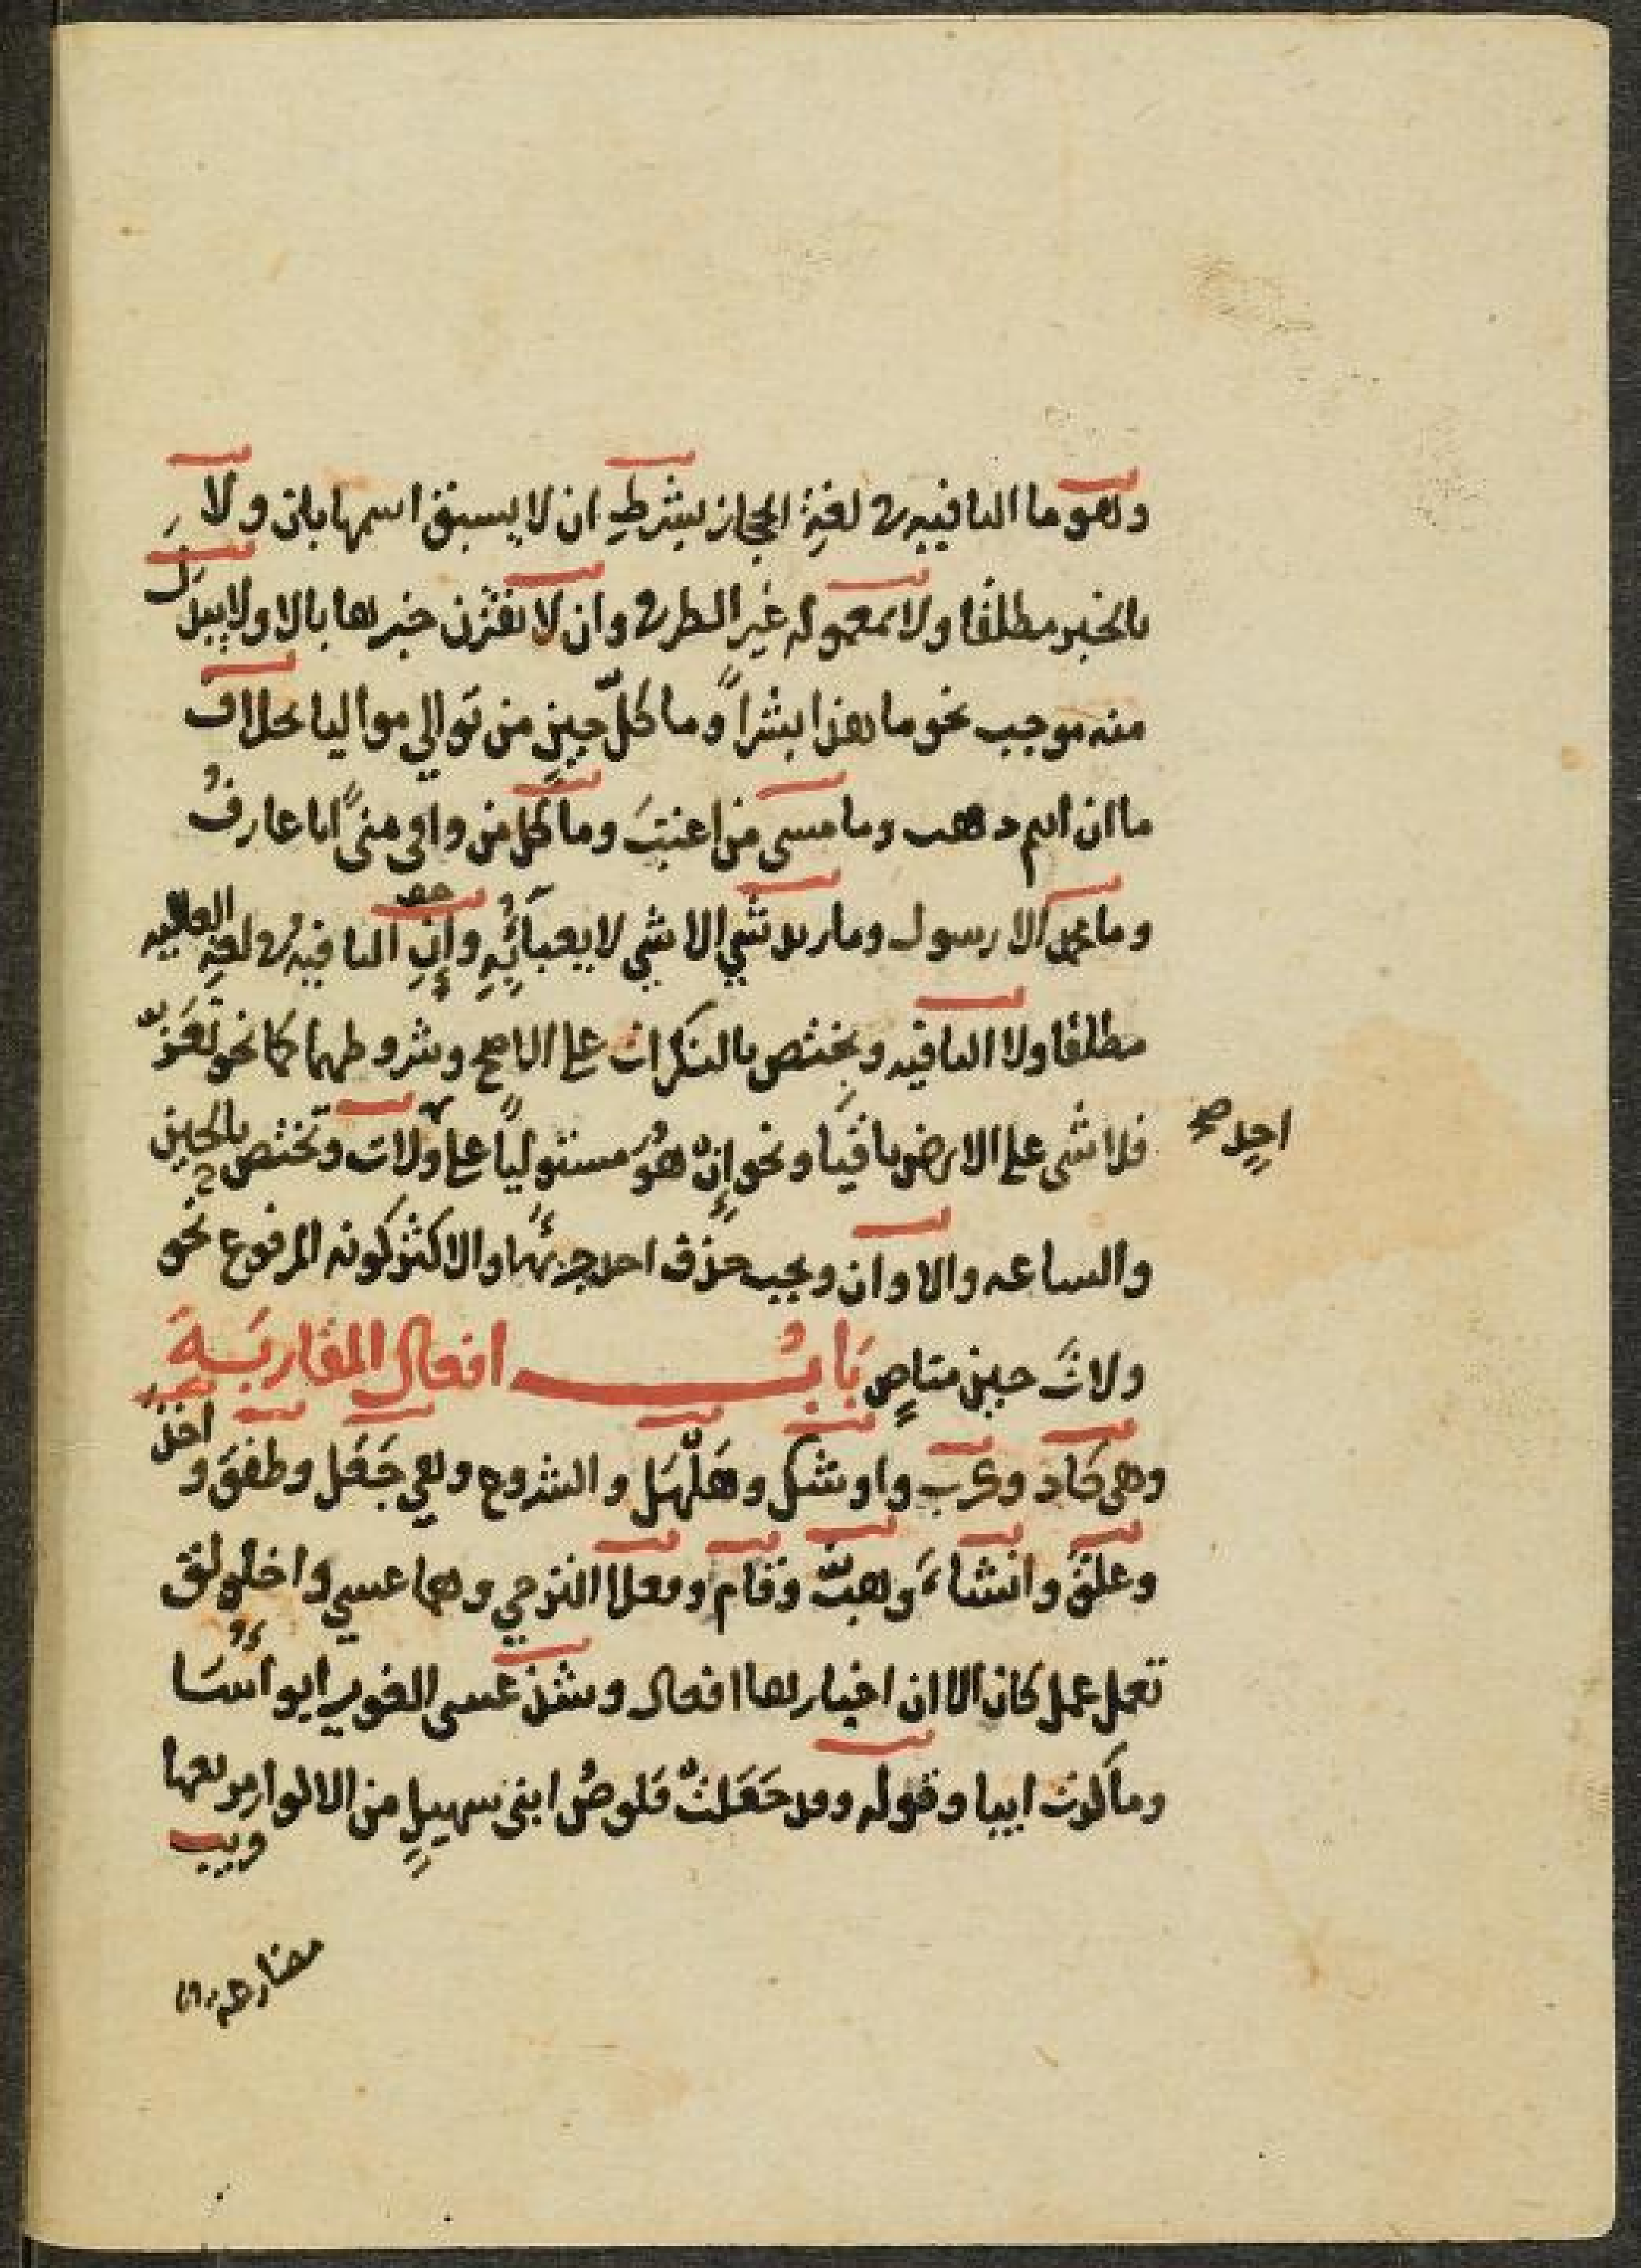 وهو ما النافيه في لغة الحجاز بشرط ان لا يسبق اسمها بان ولا
بالخبر مطلقا ولا بمعموله غير الظرف وان لا تقترن خبرها بالا ولا يبدل
منه موجب نحو ما هذا بشراً وما كلّ حين من توالي مواليا بخلاف
ما ان انتم ذهب وما مسي من اعتب وما كل من وافى منىً انا عارف
وما محمد الا رسول وما زيد شي الا شي لا يعبأ به وإن النافيه في لغة العاليه
مطلقا ولا النافيه ويختص بالنكرات على الاصح وشروطهما كما نحو تعزّ
فلا شى على الارض باقيا ونحو إن هو مستولياً على ولات وتختص بالحين
احدٍ صح
والساعه والاوان ويجب حذف احد جزئها والاكثر كونه المرفوع نحو
ولات حين مناص باب افعال المقاربة
وهى كاد وكرب واوشك وهلهل والشروع وهي جَعَل وطفق و اخذ
وعلق وانشاء وهبّ وقام وفعلا الترجي وهما عسي واخلولق
تعمل عمل كان الا ان اخبارها افعال وشذ عسى الغوير ابوأسا
وما كدت ايبا وقوله وقد جَعَلتْ قلوصُ ابنى سهيلٍ من الاكوار مرتعها
قريب
مضارعه